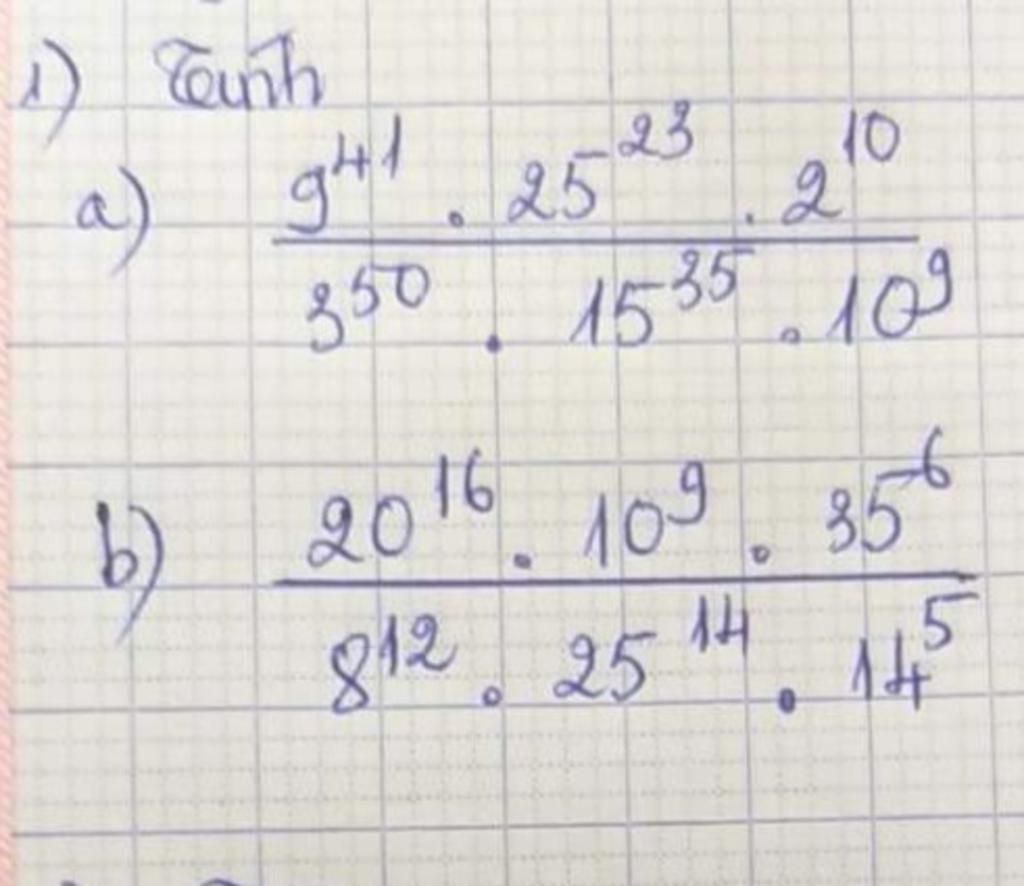 1) Tính
a) 9^41 . 25^23 . 2^10
3^50 . 15^35 . 10^9
b) 20^16 . 10^9 . 35^6
8^12 . 25^14 . 14^5